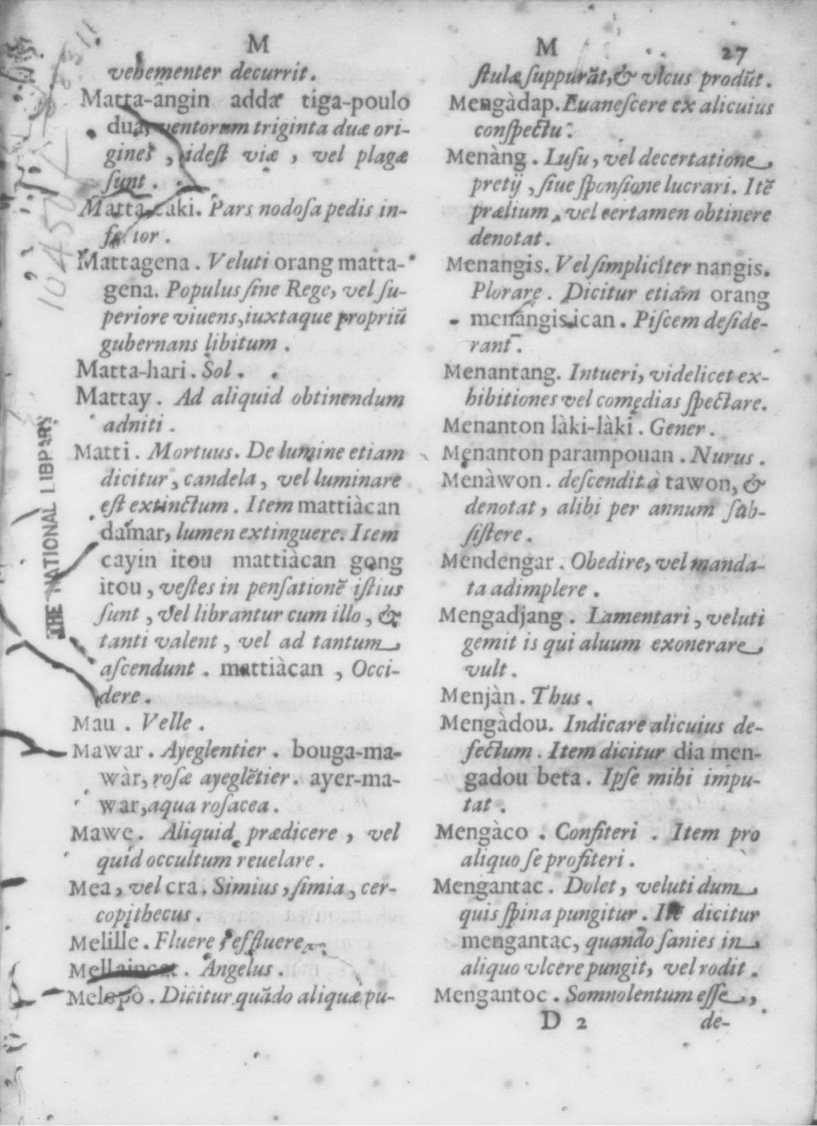 M
vehementer decurrit.
Matta-angin addâ tiga-poulo
dua, ventorum triginta duæ ori-
gines, idest viæ, vel plagæ
sunt.
Matta, caki. Pars nodoſa pedis in-
ior.
Mattagena. Veluti orang matta-
gena. Populus ſine Rege, vel ſu-
periore viuens, iuxtaque propriũ
gubernans libitum.
Matta-hari. Sol.
Mattay. Ad aliquid obtinendum
adniti.
Matti. Mortuus. De lumine etiam
dicitur, candela, vel luminare
eſt extinctum. Item mattiàcan
damar, lumen extinguere. Item
cayin itou mattiàcan gong
itou, veſtes in penſationẽ iſtius
ſunt, vel librantur cum illo, &
tanti valent, vel ad tantum
aſcendunt. mattiàcan, Occi-
dere.
Mau. Velle.
Mawar. Ayeglentier. bouga-ma-
wàr, roſæ ayeglẽtier. ayer-ma-
war, aqua roſacea.
Mawe. Aliquid prædicere, vel
quid occultum reuelare.
Mea, vel cra. Simius, ſimia, cer-
copithecus.
Melille. Fluere, effluere.
Angelus.
Melopò. Dicitur quãdo aliquæ pu-
M 27
ſtulæ ſuppurãt, & vlcus prodũt.
Mengàdap. Euaneſcere ex alicuius
conſpectu.
Menàng. Luſu, vel decertatione,
pretij, ſiue ſponſione lucrari. Itẽ
prælium, vel certamen obtinere
denotat.
Menangis. Vel ſimpliciter nangis.
Plorare. Dicitur etiam orang
menangis ican. Piſcem deſide-
rant.
Menantang. Intueri, videlicet ex-
hibitiones vel comędias ſpectare.
Menanton làki-làki. Gener.
Menanton parampouan. Nurus.
Menàwon. deſcendit à tawon, &
denotat, alibi per annum ſub-
ſiſtere.
Mendengar. Obedire, vel manda-
ta adimplere.
Mengadjang. Lamentari, veluti
gemit is qui aluum exonerare
vult.
Menjàn. Thus.
Mengàdou. Indicare alicuius de-
fectum. Item dicitur dia men-
gadou beta. Ipſe mihi impu-
tat.
Mengàco. Confiteri. Item pro
aliquo ſe profiteri.
Mengantac. Dolet, veluti dum
quis ſpina pungitur. Itẽ dicitur
mengantac, quando ſanies in
aliquo vlcere pungit, vel rodit.
Mengantoc. Somnolentum eſſe,
D 2 de-
THE NATIONAL LIBRARY